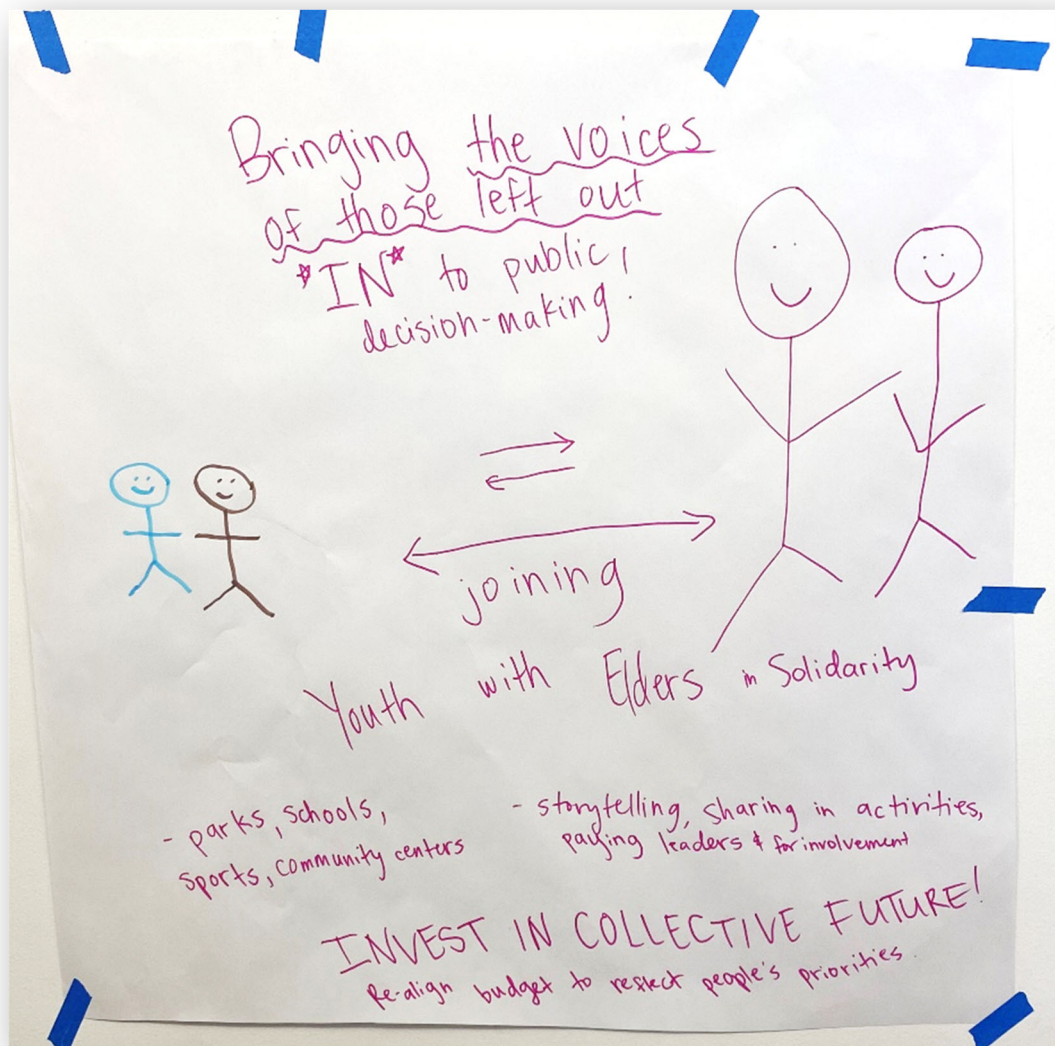 Bringing the voices
of those left out
*IN* to public
decision-making!
joining
Youth with Elders in Solidarity
- parks, schools,
sports, community centers
- storytelling, sharing in activities,
paying leaders & for involvement
INVEST IN COLLECTIVE FUTURE!
Re-align budget to reflect people's priorities.